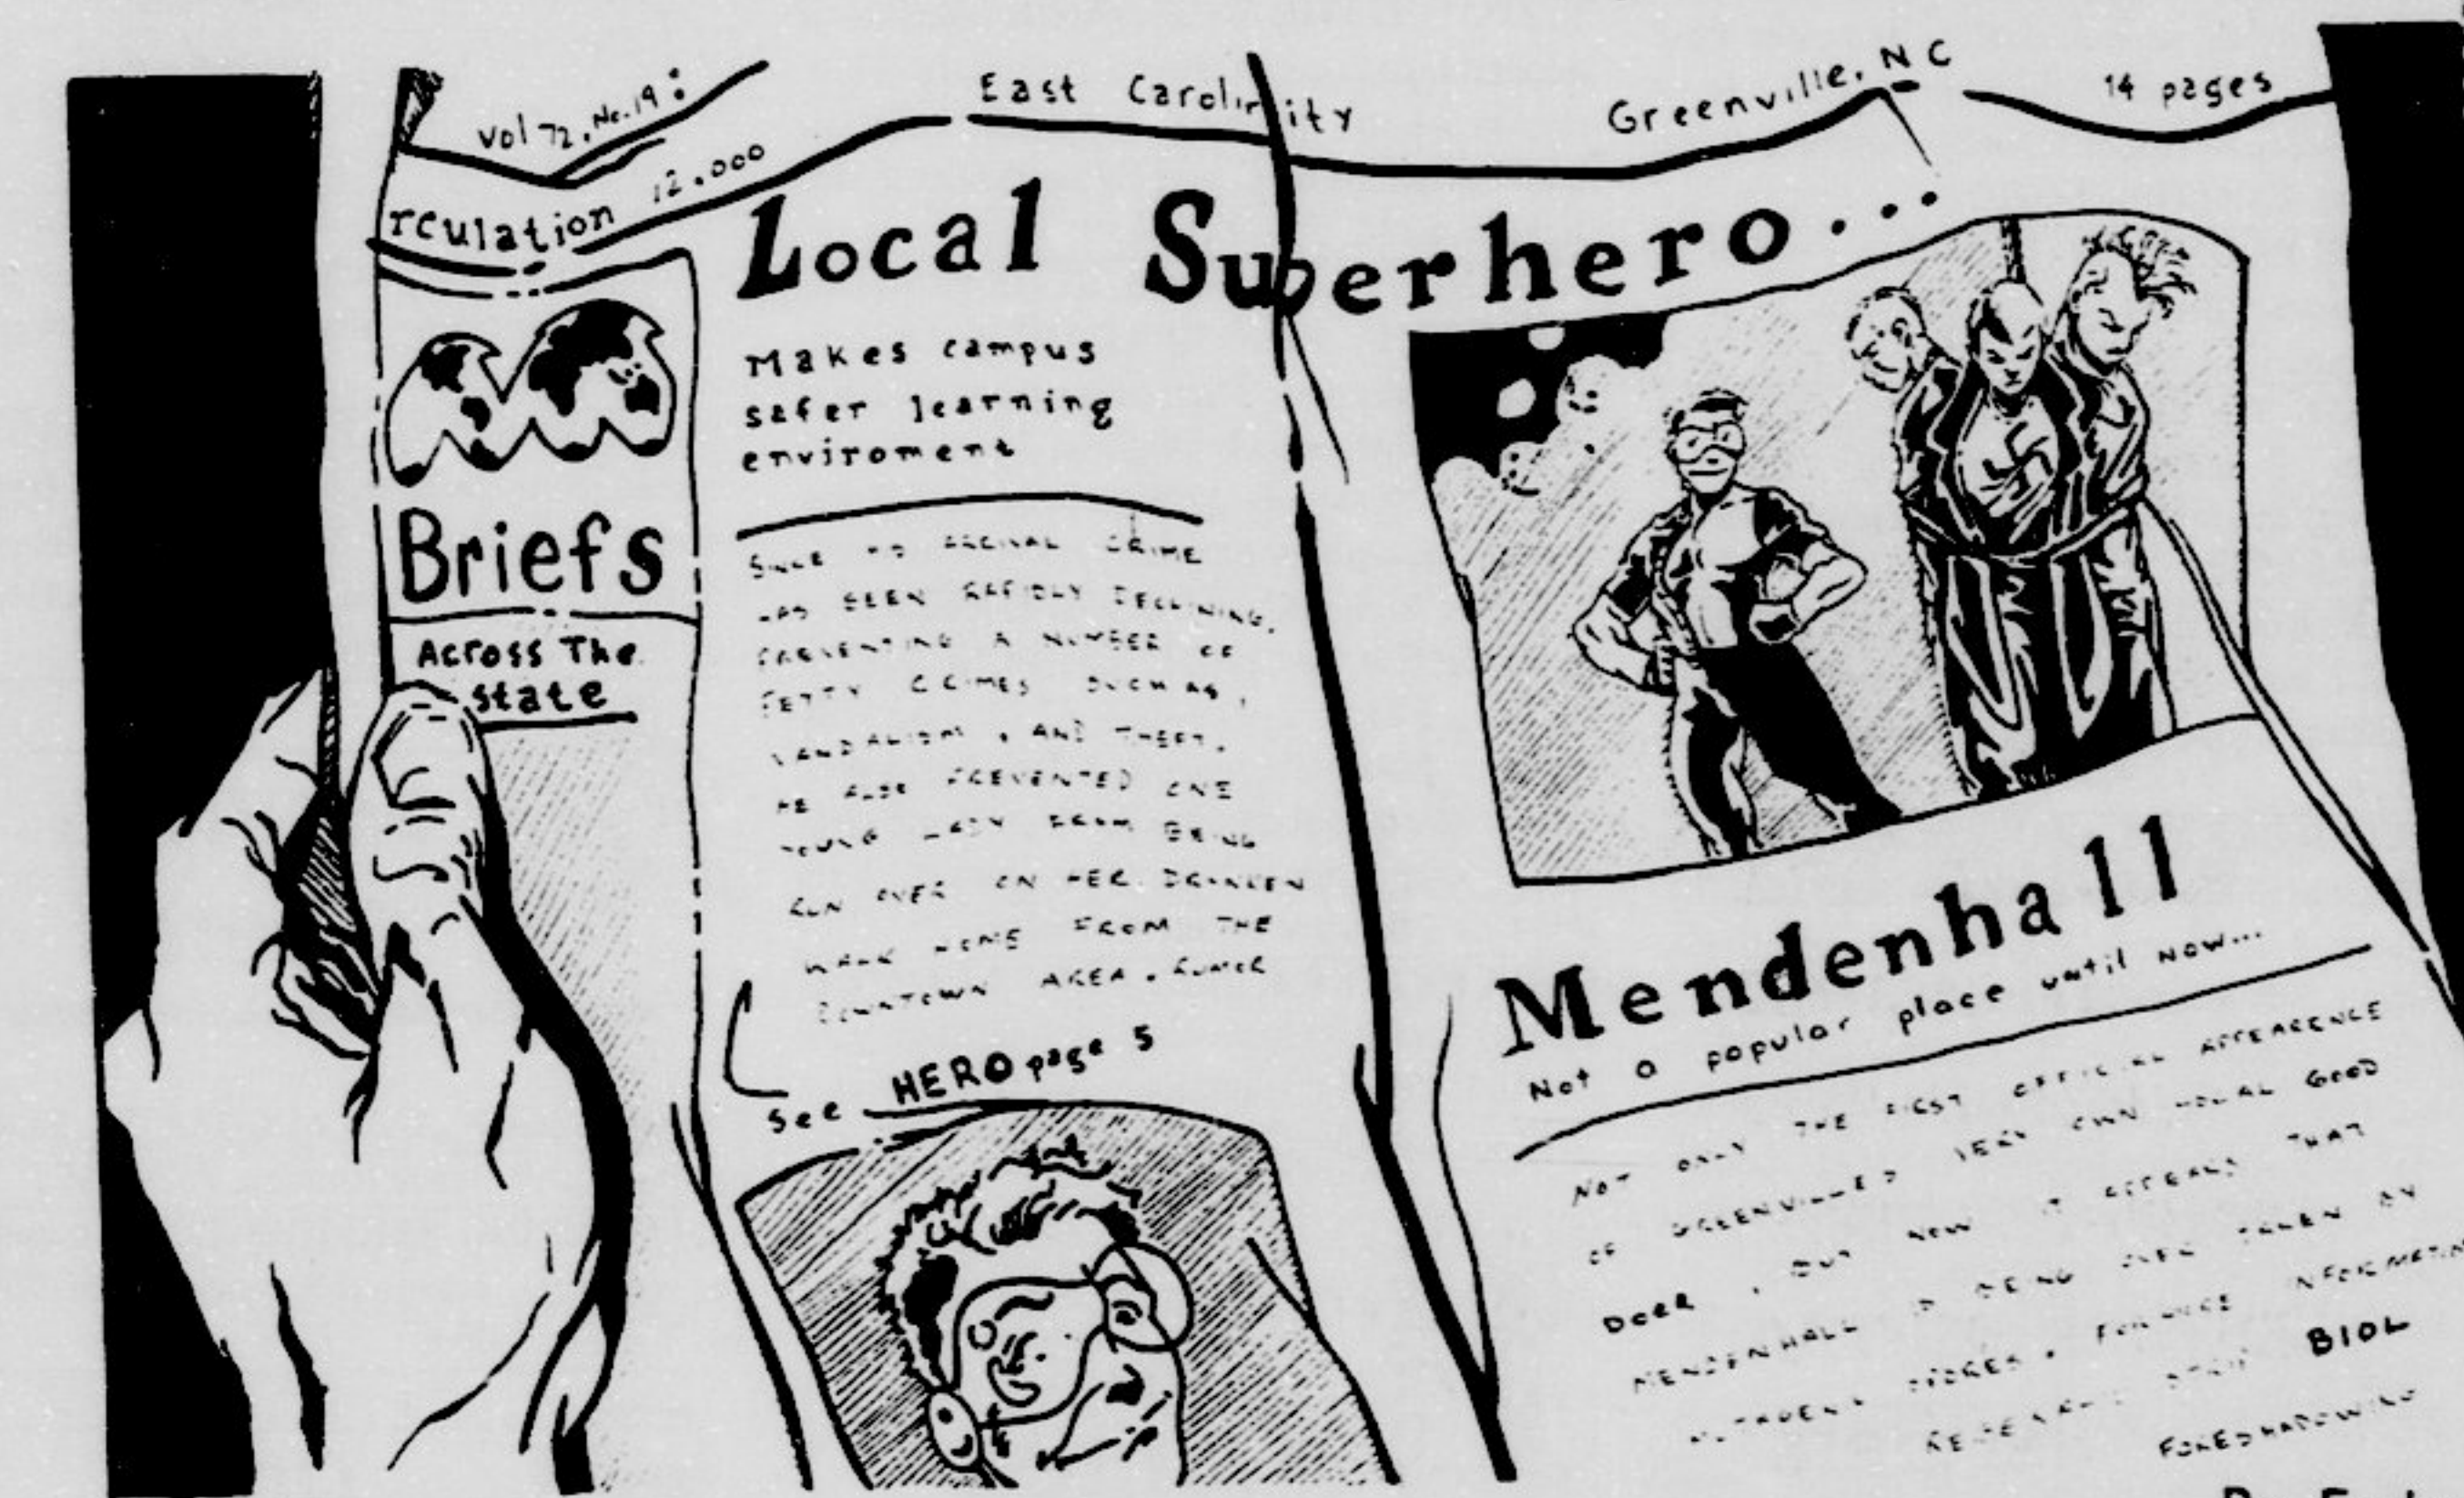 Vol 72. No. 19
East Carolin ity
Greenville. NC
14 pages
rculation 12.000
Local Superhero...
Makes campus
safer learning
enviroment
Briefs
Across The
State
Since his arrival crime
has been rapidly declining.
preventing a number of
petty crimes such as,
vandalism, and theft.
He also prevented one
young lady from being
run over on her drunken
walk home from the
downtown area. Rumor
See HERO page 5
Mendenhall
Not a popular place until now...
Not only the first official appearence
of Greenville's very own good
doer, but now it appears that
Mendenhall is being over taken by
. For more information
strip BIOL
foreshadowing